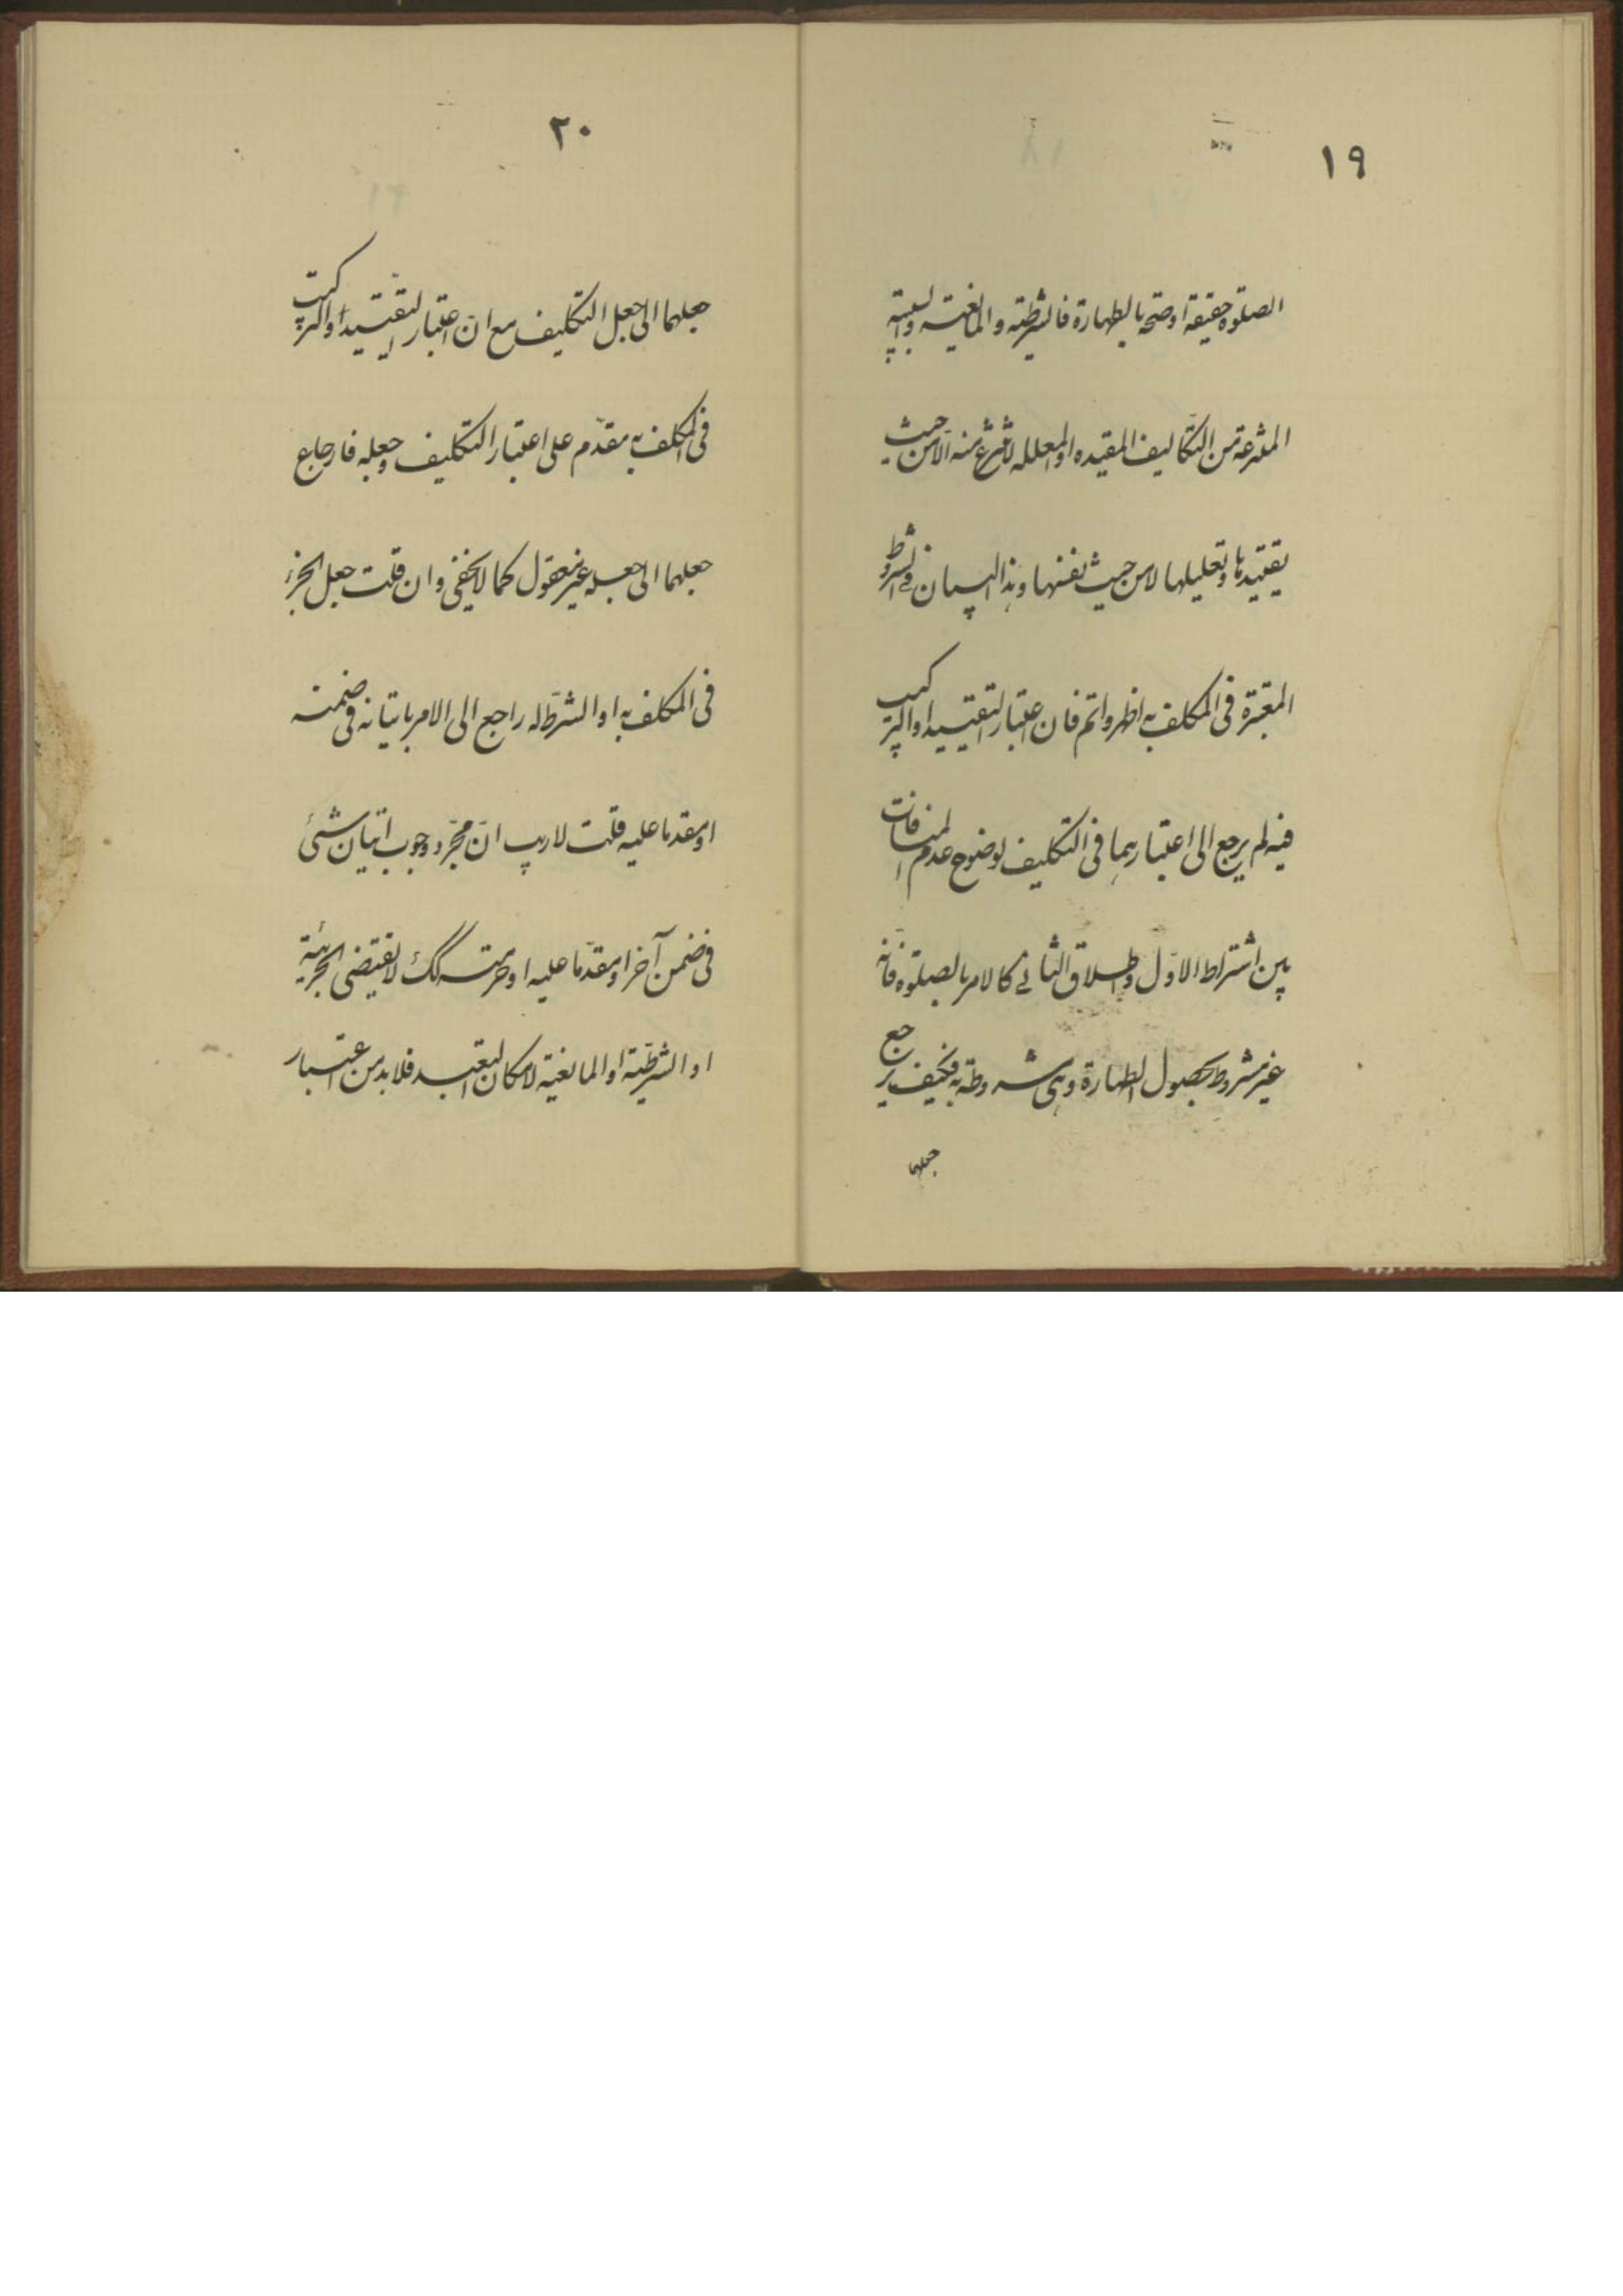 ١٩
الصلوة حقيقة او صحة بالطهارة فالشرطية والمانعية والسببية
المنتزعة من التكاليف المقيده او المعلله لا تنتزع منه الا من حيث
تقييدها و تعليلها لا من حيث نفسها و هذا البيان فى الشروط
المعتبرة فى المكلف به اظهر و اتم فان اعتبار التقييد او التركيب
فيه لم يرجع الى اعتبارهما فى التكليف لوضوح عدم المنافات
بين اشتراط الاوّل و اطلاق الثانى كالامر بالصلوة فانه
غير مشروط بحصول الطهارة و هى مشروطة به فكيف يرجع
جعلهما
٢٠
جعلهما الى جعل التكليف مع انّ اعتبار التقييد او التركيب
فى المكلف به مقدّم على اعتبار التكليف و جعله فارجاع
جعلهما الى جعله غير معقول كما لا يخفى و ان قلت جعل الجزء
فى المكلف به او الشرط له راجع الى الامر باتيانه فى ضمنه
او مقدما عليه قلت لا ريب انّ مجرّد وجوب اتيان شئ
فى ضمن آخر او مقدّما عليه او حرمته كك لا يقتضى الجزئية
او الشرطيّة او المانعية لامكان التعبد فلا بد من اعتبار